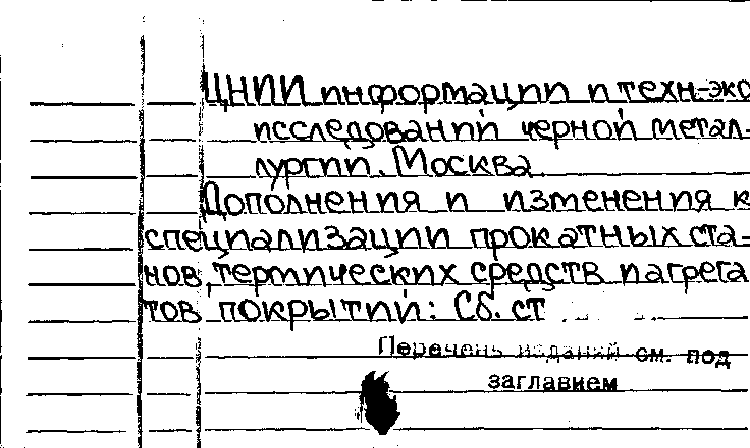 ЦНИИ информации и техн-эко
исследований черной метал-
лургии. Москва
Дополнения и изменения к
специализации прокатных ста-
нов, термических средств и агрега
тов покрытий: Сб. ст
Перечень изданий см. под
заглавием